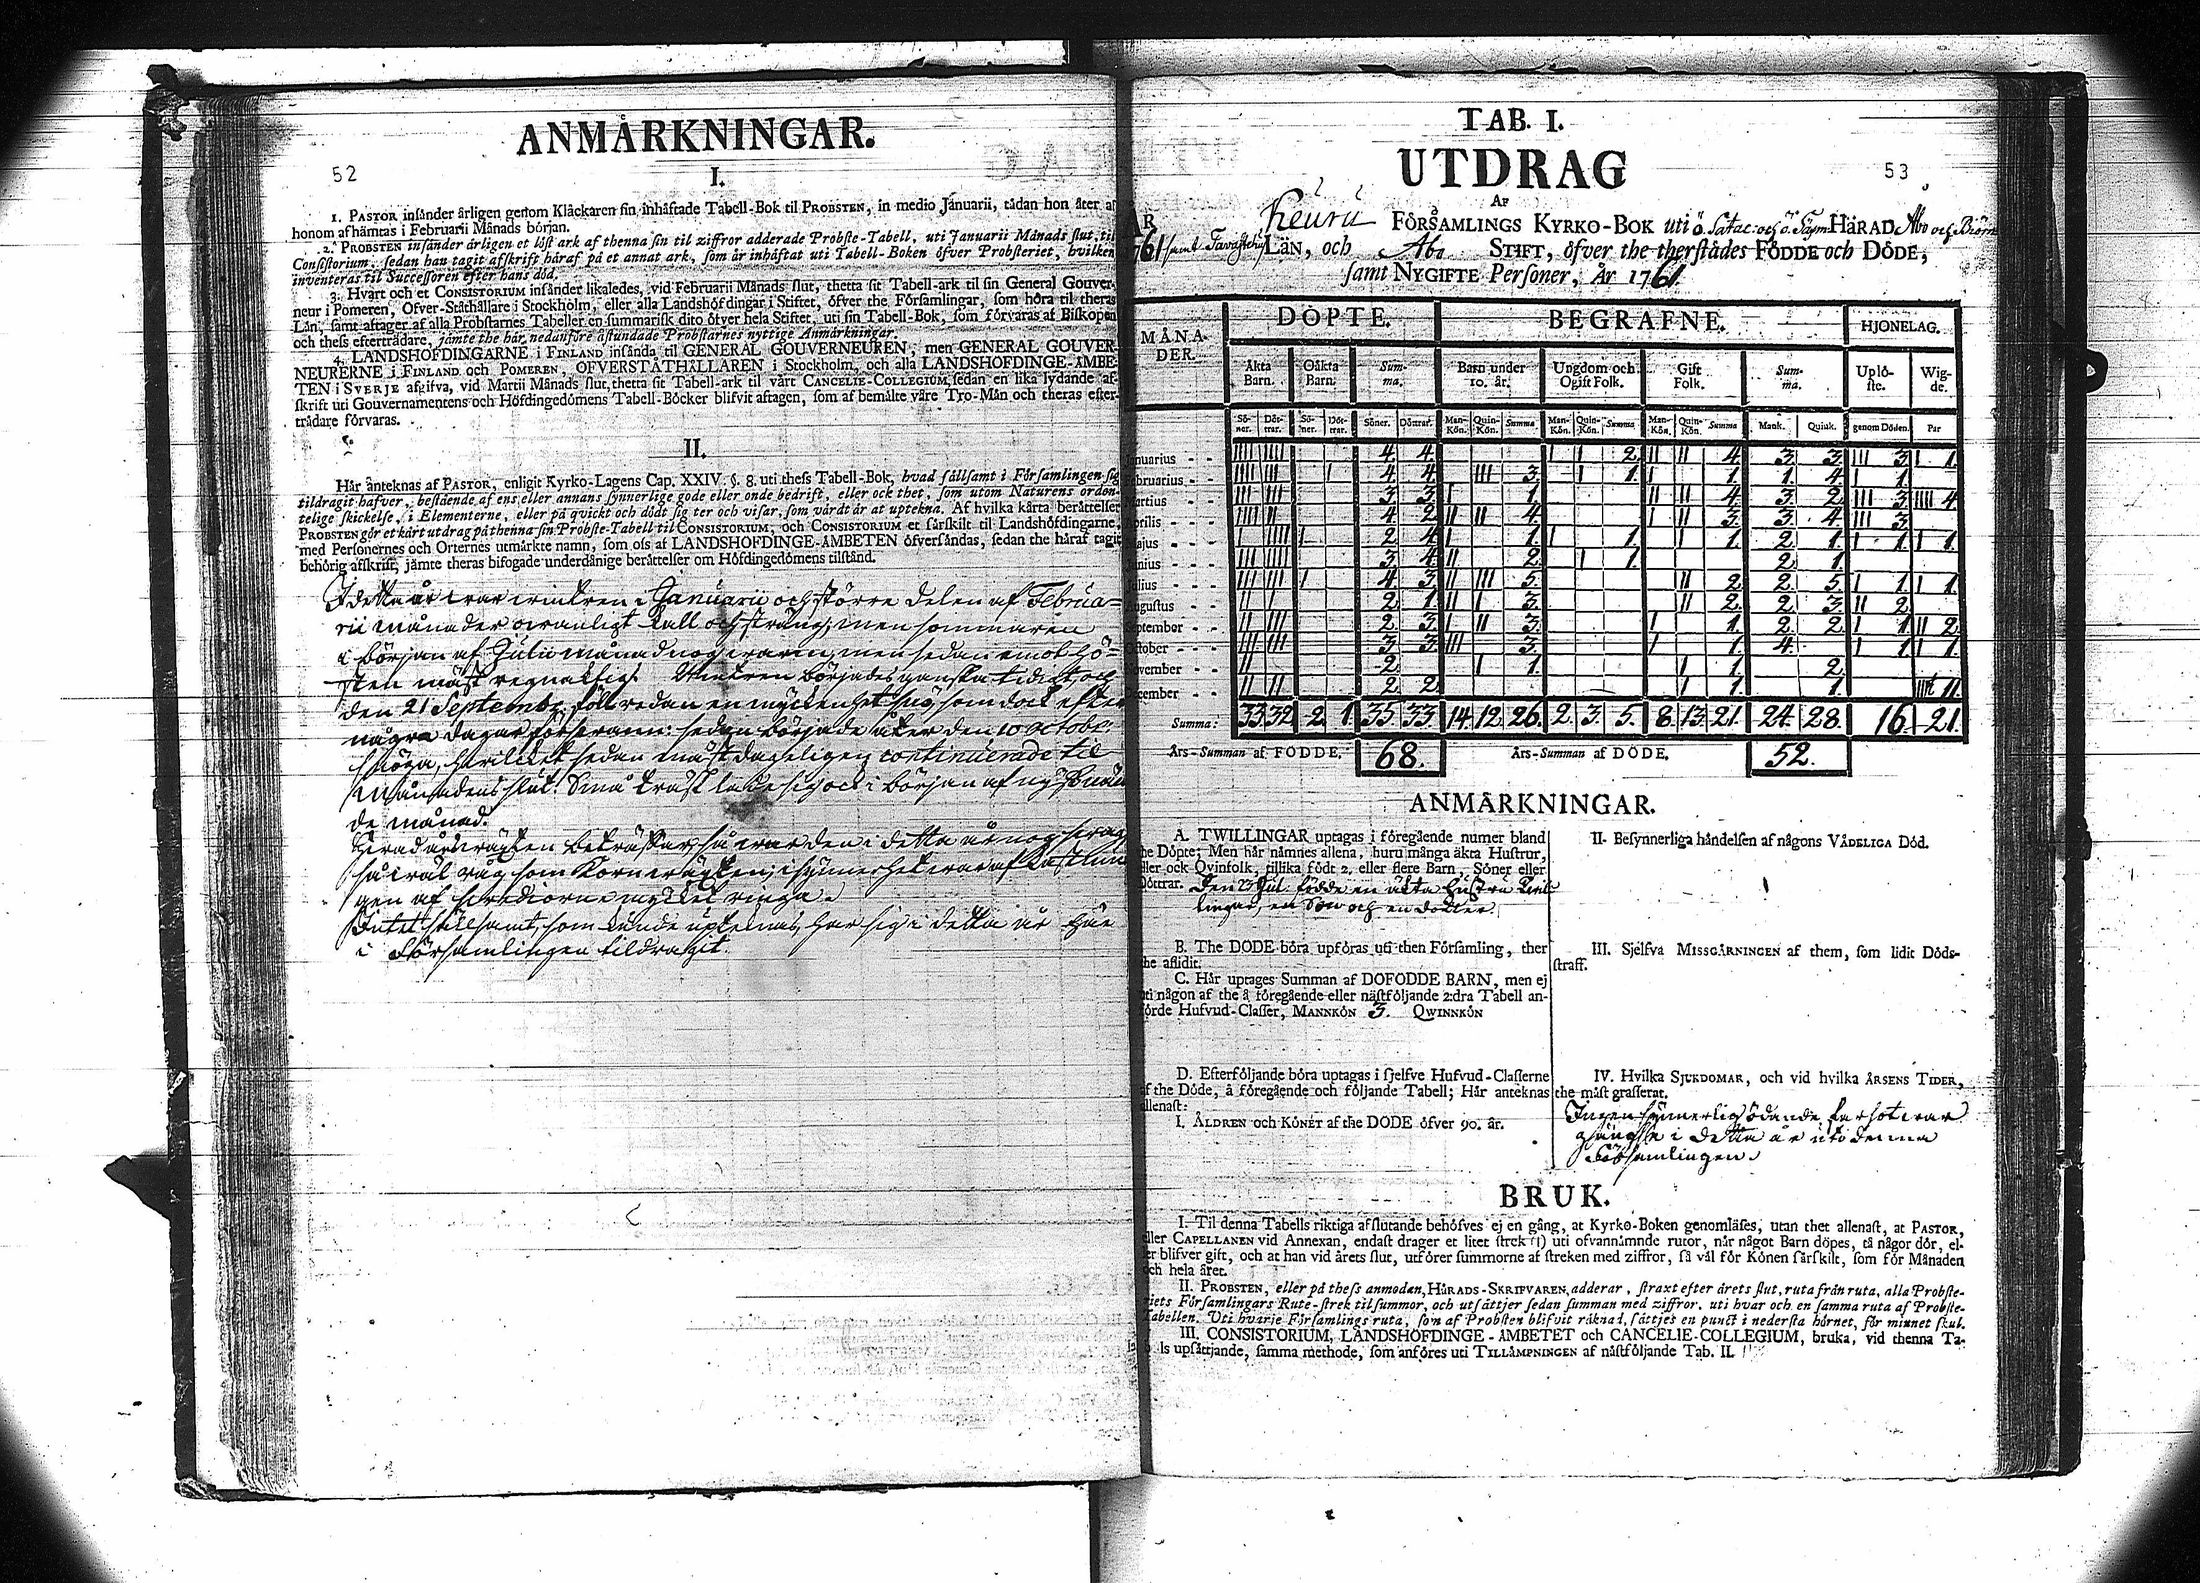 ANMÄRKNINGAR.
52
I.
1. PASTOR insänder årligen genom Klåckaren sin inhäftade Tabell-Bok til PROBSTEN, in medio Januarii, tådan hon åter af
honom afhämtas i Februarii Månads början.
2. PROBSTEN insänder årligen et löst ark af thenna sin til ziffror adderade Probste-Tabell, uti Januarii Månads slut, til
Consistorium, sedan han tagit afskrift häraf på et annat ark, som är inhäftat uti Tabell-Boken öfver Probsteriet, hvilken
inventeras til Successoren efter hans död.
3. Hvart och et CONSISTORIUM insänder likaledes, vid Februarii Månads slut, thetta sit Tabell-ark til sin General Gouver-
neur i Pomeren, Öfver-Ståthållare i Stockholm, eller alla Landshöfdingar i Stiftet, öfver the Församlingar, som höra til theras
Län, samt aftager af alla Probstarnes Tabeller en summarisk dito öfver hela Stiftet, uti sin Tabell-Bok, som förvaras af Biskopen
och thess efterträdare, jämte the här nedanföre åstundade Probstarnes nyttige Anmärkningar.
4. LANDSHÖFDINGARNE i FINLAND insända til GENERAL GOUVERNEUREN, men GENERAL GOUVER-
NEURERNE i FINLAND och POMEREN, ÖFVERSTÅTHÅLLAREN i Stockholm, och alla LANDSHÖFDINGE-ÄMBE-
TEN i SVERJE afgifva, vid Martii Månads slut, thetta sit Tabell-ark til vårt CANCELIE-COLLEGIUM, sedan en lika lydande af-
skrift uti Gouvernamentens och Höfdingedömens Tabell-Böcker blifvit aftagen, som af bemälte våre Tro-Män och theras efter-
trädare förvaras.
II.
Här änteknas af PASTOR, enligit Kyrko-Lagens Cap. XXIV. §. 8. uti thess Tabell-Bok, hvad sällsamt i Församlingen sig
tildragit hafver, bestående af ens eller annans synnerlige gode eller onde bedrift, eller ock thet, som utom Naturens orden-
telige skickelse, i Elementerne, eller på qvickt och dödt sig ter och visar, som värdt är at uptekna. Af hvilka korta berättelser
PROBSTEN gör et kårt utdrag på thenna sin Probste-Tabell til CONSISTORIUM, och CONSISTORIUM et särskilt til Landshöfdingarne,
med Personernes och Orternes utmärkte namn, som oss af LANDSHÖFDINGE-ÄMBETEN öfversändas, sedan the häraf tagit
behörig afskrift, jämte theras bifogade underdånige berättelser om Höfdingedömens tilstånd.
I detta år war wintren i Januarii och större delen af Februa-
rii månader owanligt kall och sträng, men sommaren
i början af Julii månad nog warm, men sedan emot hö-
sten mäst regnaktig. Wintren börjades ganska tidigt, och
den 21 Septembr. föll redan en myckenhet snö, som dock efter
några dagar försvann: sedan började åter den 10 Octobr.
snöga, hwilket sedan mäst dageligen continuerade til
månadens slut. Små träsk lade sig ock i början af
de månad.
Hwad årswäxten beträffar, så war den i detta år nog swag,
så wäl råg som kornwäxten,
gen af swediorne mycket ringa.
Intet sällsamt, som kunde upteknas, har sig i detta år här
i Församlingen tildragit.
TAB. I.
UTDRAG
53
AF
Keuru FÖRSAMLINGS KYRKO-BOK uti Ö. Satac. och Ö. HÄRAD Åbo och Biörn
samt Tavastehus LÄN, och Åbo STIFT, öfver the therstädes FÖDDE och DÖDE,
samt NYGIFTE Personer, År 1761.
MÅNA- DER. DÖPTE. BEGRAFNE. HJONELAG.
Äkta Barn. Oäkta Barn. Summa. Barn under 10. år. Ungdom och Ogift Folk. Gift Folk. Summa. Uplö- ste. Wig- de.
Sö- ner. Dött- rar. Sö- ner. Dött- rar. Söner. Döttrar. Man- Kön. Quin- Kön. Summa Man- Kön. Quin- Kön. Summa Man- Kön. Quin- Kön. Summa Mank. Quink. genom Döden. Par
Januarius - - IIII IIII 4. 4. I I 2. II II 4. 3. 3. III 3. I 1.
Februarius - - IIII IIII I 4. 4. III 3. I 1. I 1. 1. 4. I 1.
Martius - - III III 3. 3. I 1. II II 4. 3. 2. III 3. IIII 4.
Aprilis - - IIII II 4. 2. II II 4. I II 3. 3. 4. III 3.
Majus - - - I IIII I 2. 4. I 1. I 1. I 1. 2. 1. I 1. I 1.
Junius - - - III IIII 3. 4. II 2. I 1. 2. 1.
Julius - - - III III I 4. 3. II III 5. II 2. 2. 5. I 1. I 1.
Augustus - - II I 2. 1. II I 3. II 2. 2. 3. II 2.
September - - II III 2. 3. I II 3. I 1. 2. 2. I 1. II 2.
October - - III III 3. 3. III 3. I 1. 4. I 1. I 1.
November - - II 2. I 1. I 1. 2.
December - - II II 2. 2. I 1. 1. 11.
Summa: 33. 32. 2. 1. 35. 33. 14. 12. 26. 2. 3. 5. 8. 13. 21. 24. 28. 16. 21.
Års-Summan af FÖDDE. 68. Års-Summan af DÖDE. 52.
ANMÄRKNINGAR.
A. TWILLINGAR uptagas i föregående numer bland
the Döpte; Men här nämnes allena, huru många äkta Hustrur,
eller ock Qvinfolk, tillika födt 2. eller flere Barn, Söner eller
Döttrar. Den 23 Jul. födde en äkta hustru twil-
lingar, en Son och en dotter.
B. The DÖDE böra upföras uti then Församling, ther
the aflidit.
C. Här uptages Summan af DÖFÖDDE BARN, men ej
uti någon af the å föregående eller nästföljande 2:dra Tabell an-
förde Hufvud-Classer, MANNKÖN 3. QWINNKÖN
D. Efterföljande böra uptagas i sjelfve Hufvud-Classerne
af the Döde, å föregående och följande Tabell; Här anteknas
allenast:
I. ÅLDREN och KÖNET af the DÖDE öfver 90. år.
II. Besynnerliga händelsen af någons VÅDELIGA DÖD.
III. Sjelfva MISSGÄRNINGEN af them, som lidit Döds-
straff.
IV. Hvilka SJUKDOMAR, och vid hvilka ÅRSENS TIDER,
the mäst grasserat.
Ingen synnerlig ödande farsot war
gängse i detta år uti denna
Församlingen.
BRUK.
I. Til denna Tabells riktiga afslutande behöfves ej en gång, at Kyrko-Boken genomläses, utan thet allenast, at PASTOR,
eller CAPELLANEN vid Annexan, endast drager et litet strek (I) uti ofvannämnde rutor, när något Barn döpes, tå någor dör, el-
ler blifver gift, och at han vid årets slut, utförer summorne af streken med ziffror, så väl för Könen särskilt, som för Månaden
och hela året.
II. PROBSTEN, eller på thess anmodan, HÄRADS-SKRIFVAREN, adderar, straxt efter årets slut, ruta från ruta, alla Probste-
riets Församlingars Rute-strek til summor, och utsättjer sedan summan med ziffror, uti hvar och en samma ruta af Probste-
Tabellen. Uti hvarje Församlings ruta, som af Probsten blifvit räknat, sättjes en punct i nedersta hörnet, för minnet skul.
III. CONSISTORIUM, LANDSHÖFDINGE-ÄMBETET och CANCELIE-COLLEGIUM, bruka, vid thenna Ta-
bels upsättjande, samma methode, som anföres uti TILLÄMPNINGEN af nästföljande Tab. II.